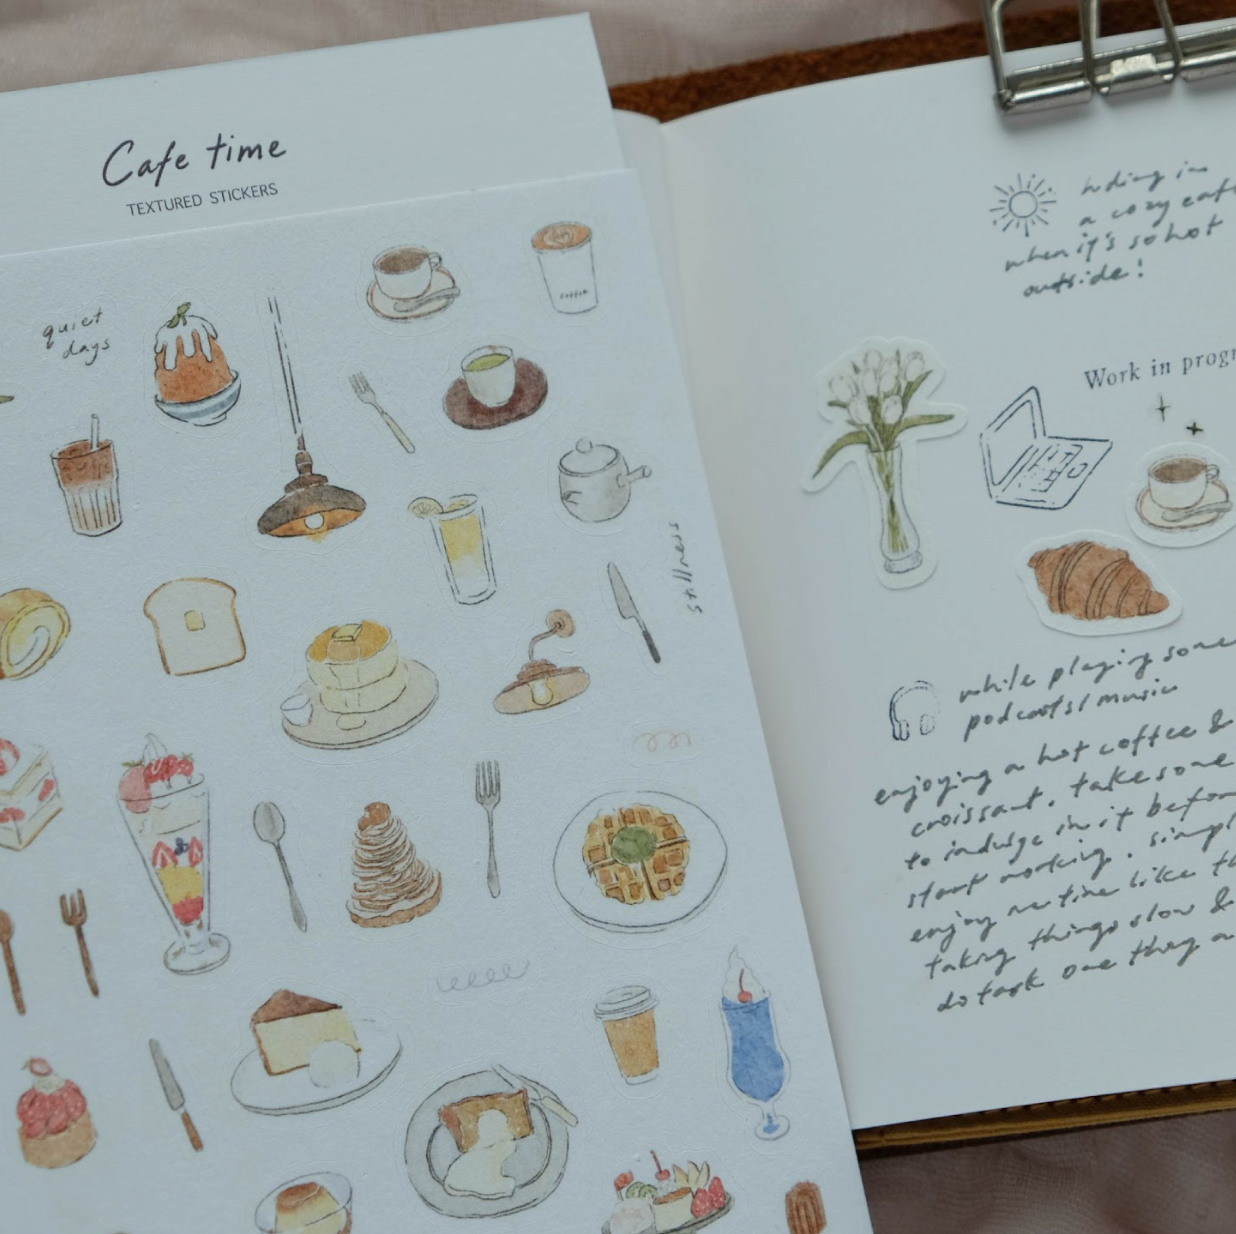 Cafe time
TEXTURED STICKERS
quiet
days
coffee
stillness
hiding in
a cozy cafe
when it's so hot
outside!
Work in
while playing some
podcasts/music
enjoying a hot coffee &
croissant. take some
to indulge in it before
start working. simple
enjoy me time like
taking things slow &
do task one thing